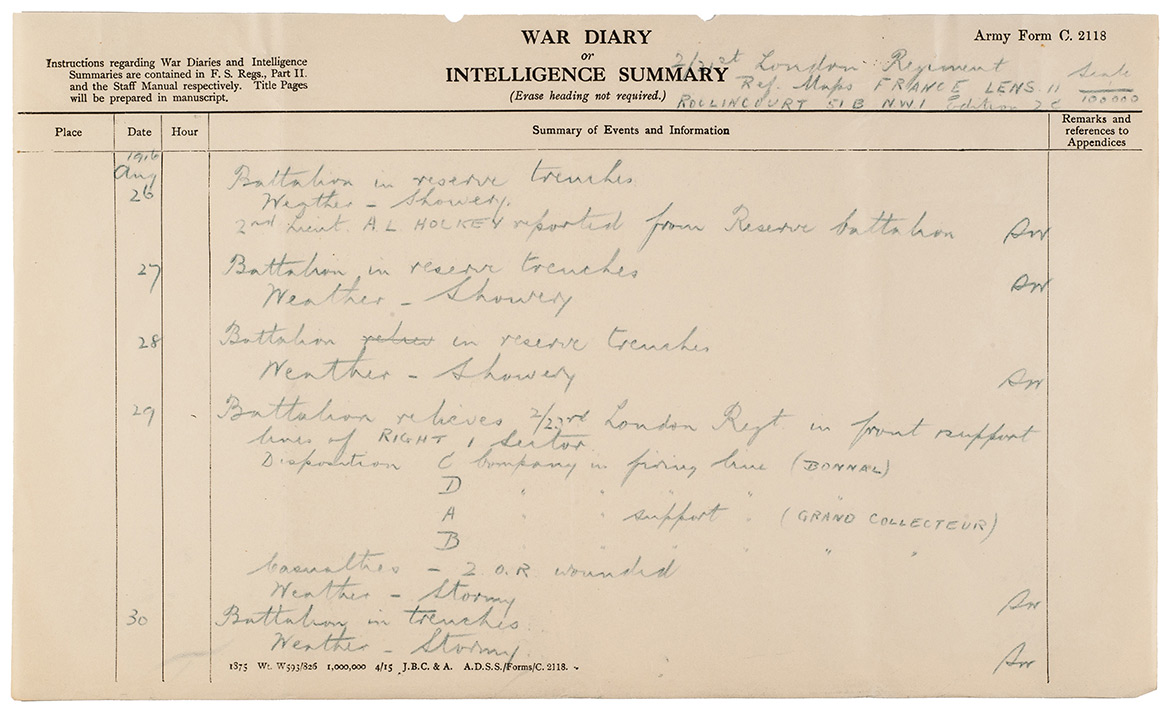 WAR DIARY
or
INTELLIGENCE SUMMARY
(Erase heading not required.)
Army Form C. 2118
Instructions regarding War Diaries and Intelligence
Summaries are contained in F. S. Regs., Part II.
and the Staff Manual respectively. Title Pages
will be prepared in manuscript.
2/21st London Regiment
Ref. Maps FRANCE LENS. 11 Scale 1/100000
ROCLINCOURT 51B NW1 Edition
Place Date Hour Summary of Events and Information Remarks and references to Appendices
1916
Aug
26 Battalion in reserve trenches
Weather – Showery.
2nd Lieut. A L HOLKEY reported from Reserve battalion
27 Battalion in reserve trenches
Weather – Showery
28 Battalion in reserve trenches
Weather – Showery
29 Battalion relieves 2/23rd London Regt in front support
lines of RIGHT 1 Sector
Disposition C Company in firing line (BONNAL)
D " " " "
A " " support " (GRAND COLLECTEUR)
B " " " " " "
Casualties – 2 O.R. wounded
Weather – Stormy
30 Battalion in trenches
Weather – Stormy.
1875 Wt. W593/826 1,000,000 4/15 J.B.C. & A. A.D.S.S./Forms/C. 2118.